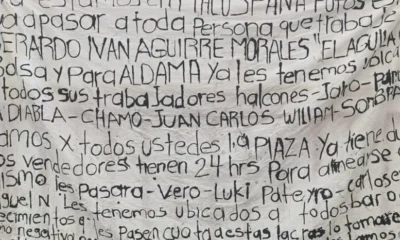 TALUS PANA FOTOS
va a pasar a toda Persona que trabaje
ERARDO IVAN AGUIRRE MORALES "EL AGUILA
osa y Para ALDAMA Ya les tenemos ubica
todos sus trabajadores halcones-Jato-
A DIABLA-CHAMO-JUAN CARLOS WILLIAM-SOMBRA
amos X todos ustedes la PLAZA Ya tiene du
os vendedores tienen 24 hrs Para alinearse o
ISMO les Pasara-Vero-Luki Pate yro-carlos
guel N. Les tenemos ubicados a todos baro
ecimientos
no negativa les Pasen cuota estas lacras lo tomare